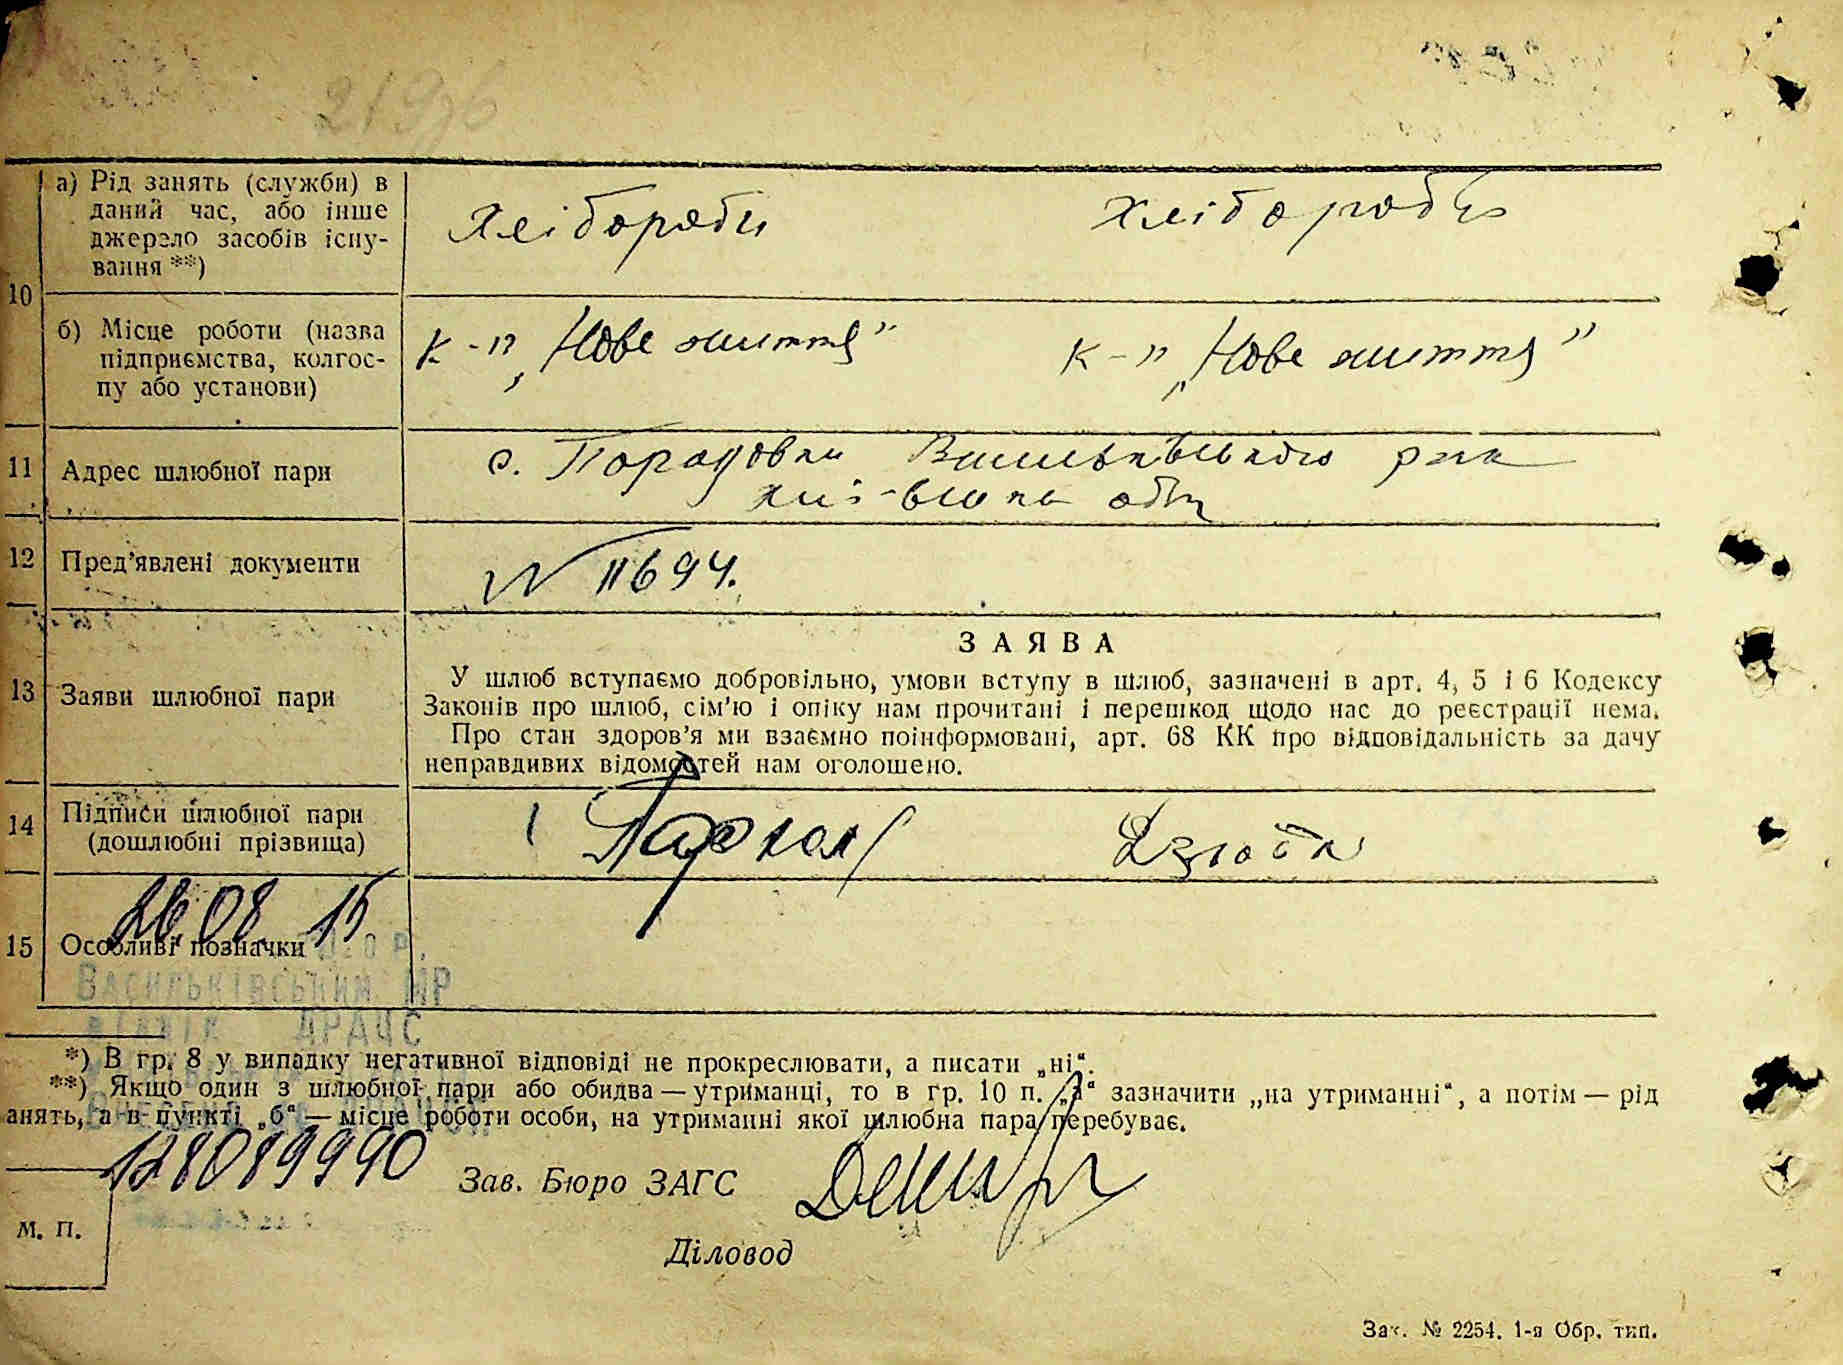 2196
а) Рід занять (служби) в
даний час, або інше
джерело засобів існу-
вання **)
Хлібороби
Хлібороби
10
б) Місце роботи (назва
підприємства, колгос-
пу або установи)
к-п „Нове життя"
к-п „Нове життя"
11
Адрес шлюбної пари
с. Порадовка Васильківського рай
обл
12
Пред'явлені документи
N 11694.
13
Заяви шлюбної пари
ЗАЯВА
У шлюб вступаємо добровільно, умови вступу в шлюб, зазначені в арт. 4, 5 і 6 Кодексу
Законів про шлюб, сім'ю і опіку нам прочитані і перешкод щодо нас до реєстрації нема.
Про стан здоров'я ми взаємно поінформовані, арт. 68 КК про відповідальність за дачу
неправдивих відомостей нам оголошено.
14
Підписи шлюбної пари
(дошлюбні прізвища)
Дзюба
26.08.15
15
Особливі позначки
Васильківський МР
відділ ДРАЦС
*) В гр. 8 у випадку негативної відповіді не прокреслювати, а писати „ні“.
**) Якщо один з шлюбної пари або обидва — утриманці, то в гр. 10 п. „а“ зазначити „на утриманні“, а потім — рід
анять, а в пункті „б“ — місце роботи особи, на утриманні якої шлюбна пара перебуває.
128089990
Зав. Бюро ЗАГС
М. П.
Діловод
Зак. № 2254. 1-я Обр. тип.